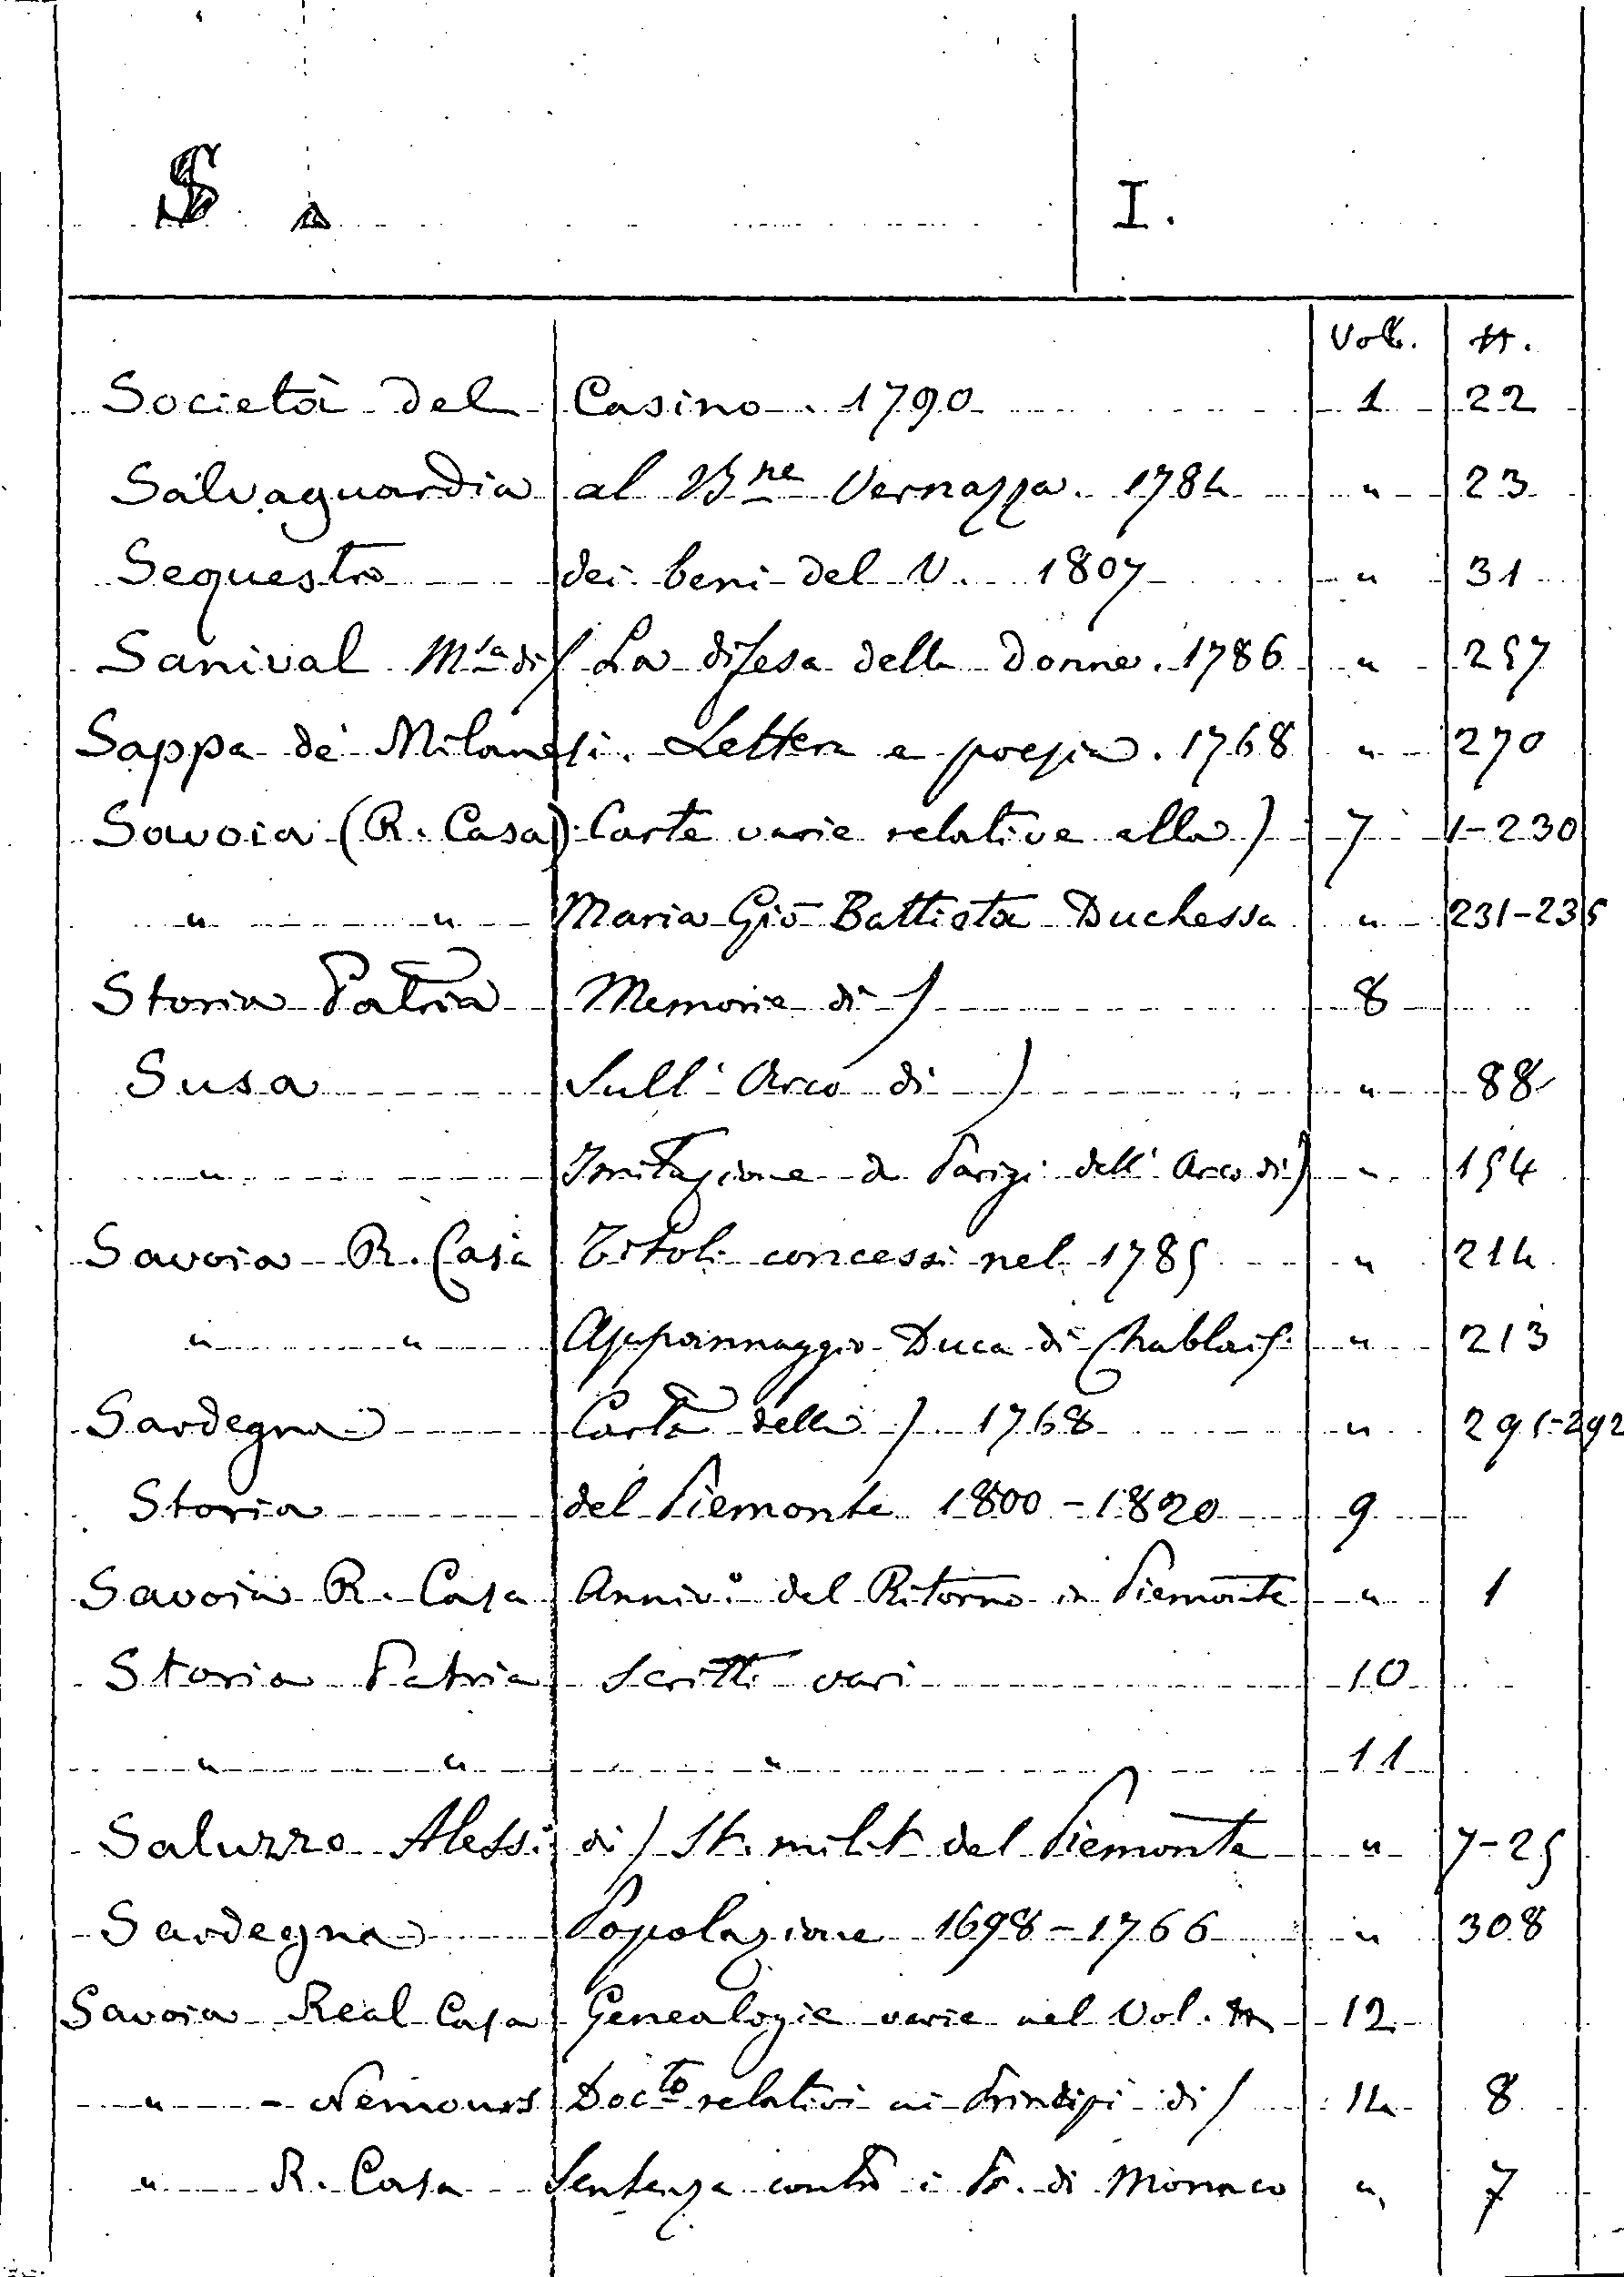 S
I.
Voll. n.
Società del Casino. 1790 1 22
Salvaguardia al B.ne Vernazza. 1784 " 23
Sequestro dei beni del V. 1807 " 31
Sanival M.sa di) La difesa delle Donne. 1786 " 257
Sappa de' Milanesi. Lettera e poesia. 1768 " 270
Savoia (R. Casa) Carte varie relative alla) 7 1-230
" " Maria Gio Battista Duchessa " 231-235
Storia Patria Memorie di) 8
Susa Sull' Arco di) " 88
" Imitazione a Parigi dell' Arco di) " 154
Savoia R. Casa Titoli concessi nel 1785 " 214
" " Appannaggio Duca di Chablais. " 213
Sardegna Carta della) 1768 " 291-292
Storia del Piemonte 1800-1820 9
Savoia R. Casa Anniv.o del Ritorno in Piemonte " 1
Storia Patria Scritti vari 10
" " " 11
Saluzzo Aless. di) St. milit del Piemonte " 7-25
Sardegna Popolazione 1698-1766 " 308
Savoia Real Casa Genealogie varie nel Vol. 12
" - Nemours Doc.to relativi ai Principi di) 14 8
" R. Casa Sentenza contro i Pr. di Monaco " 7